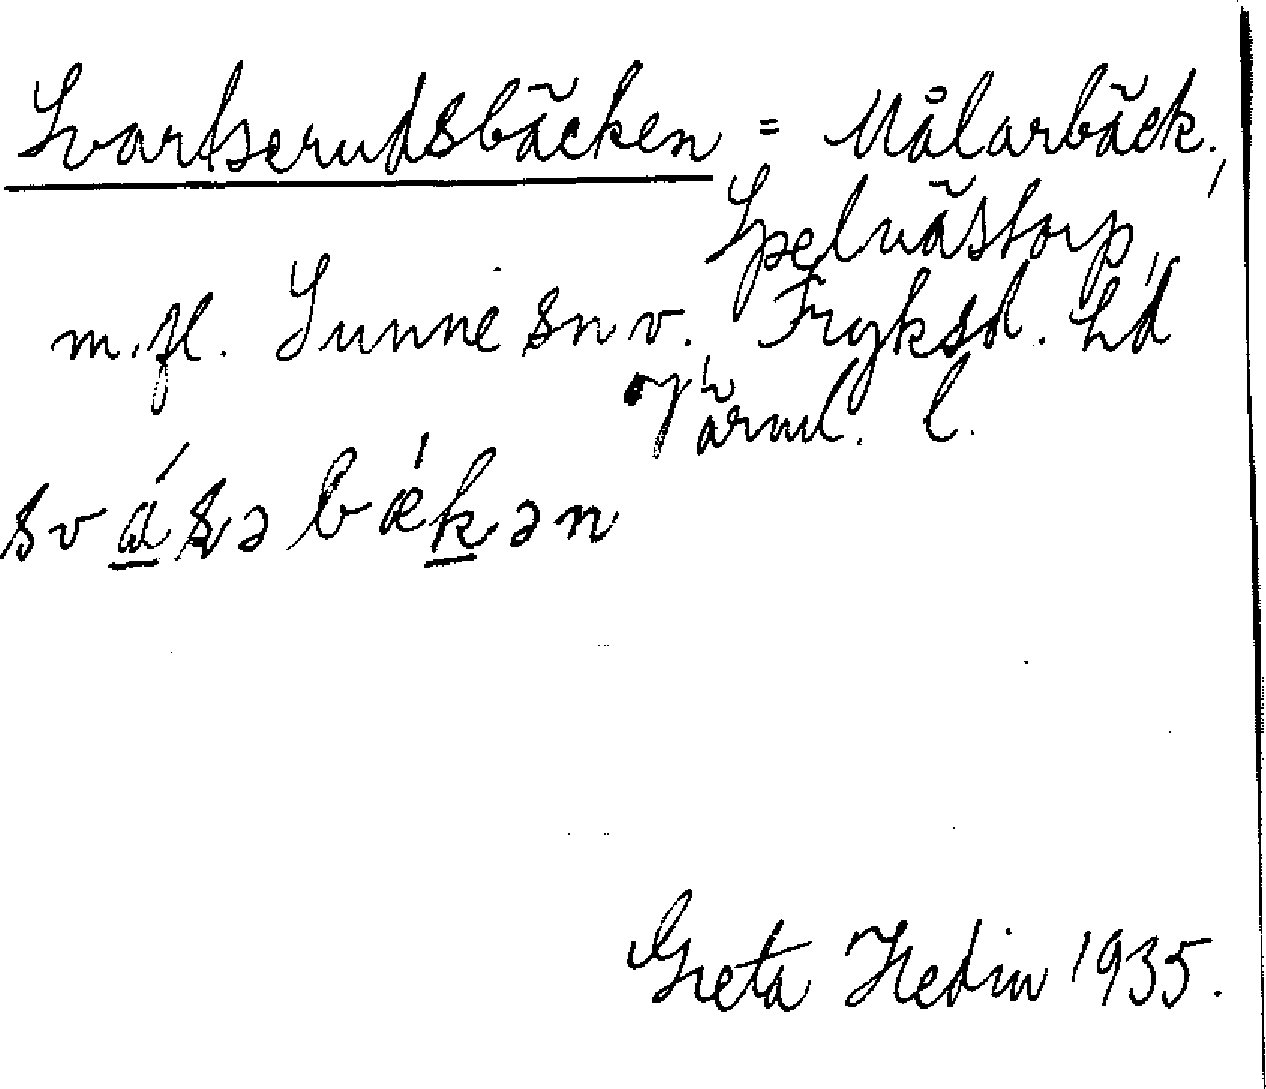 Svartserudsbäcken = Målarbäck.,
Spelnästorp,
m.fl. Sunne sn v. Fryksd. hd
Värml. l.
svásəbǽkən
Greta Hedin 1935.